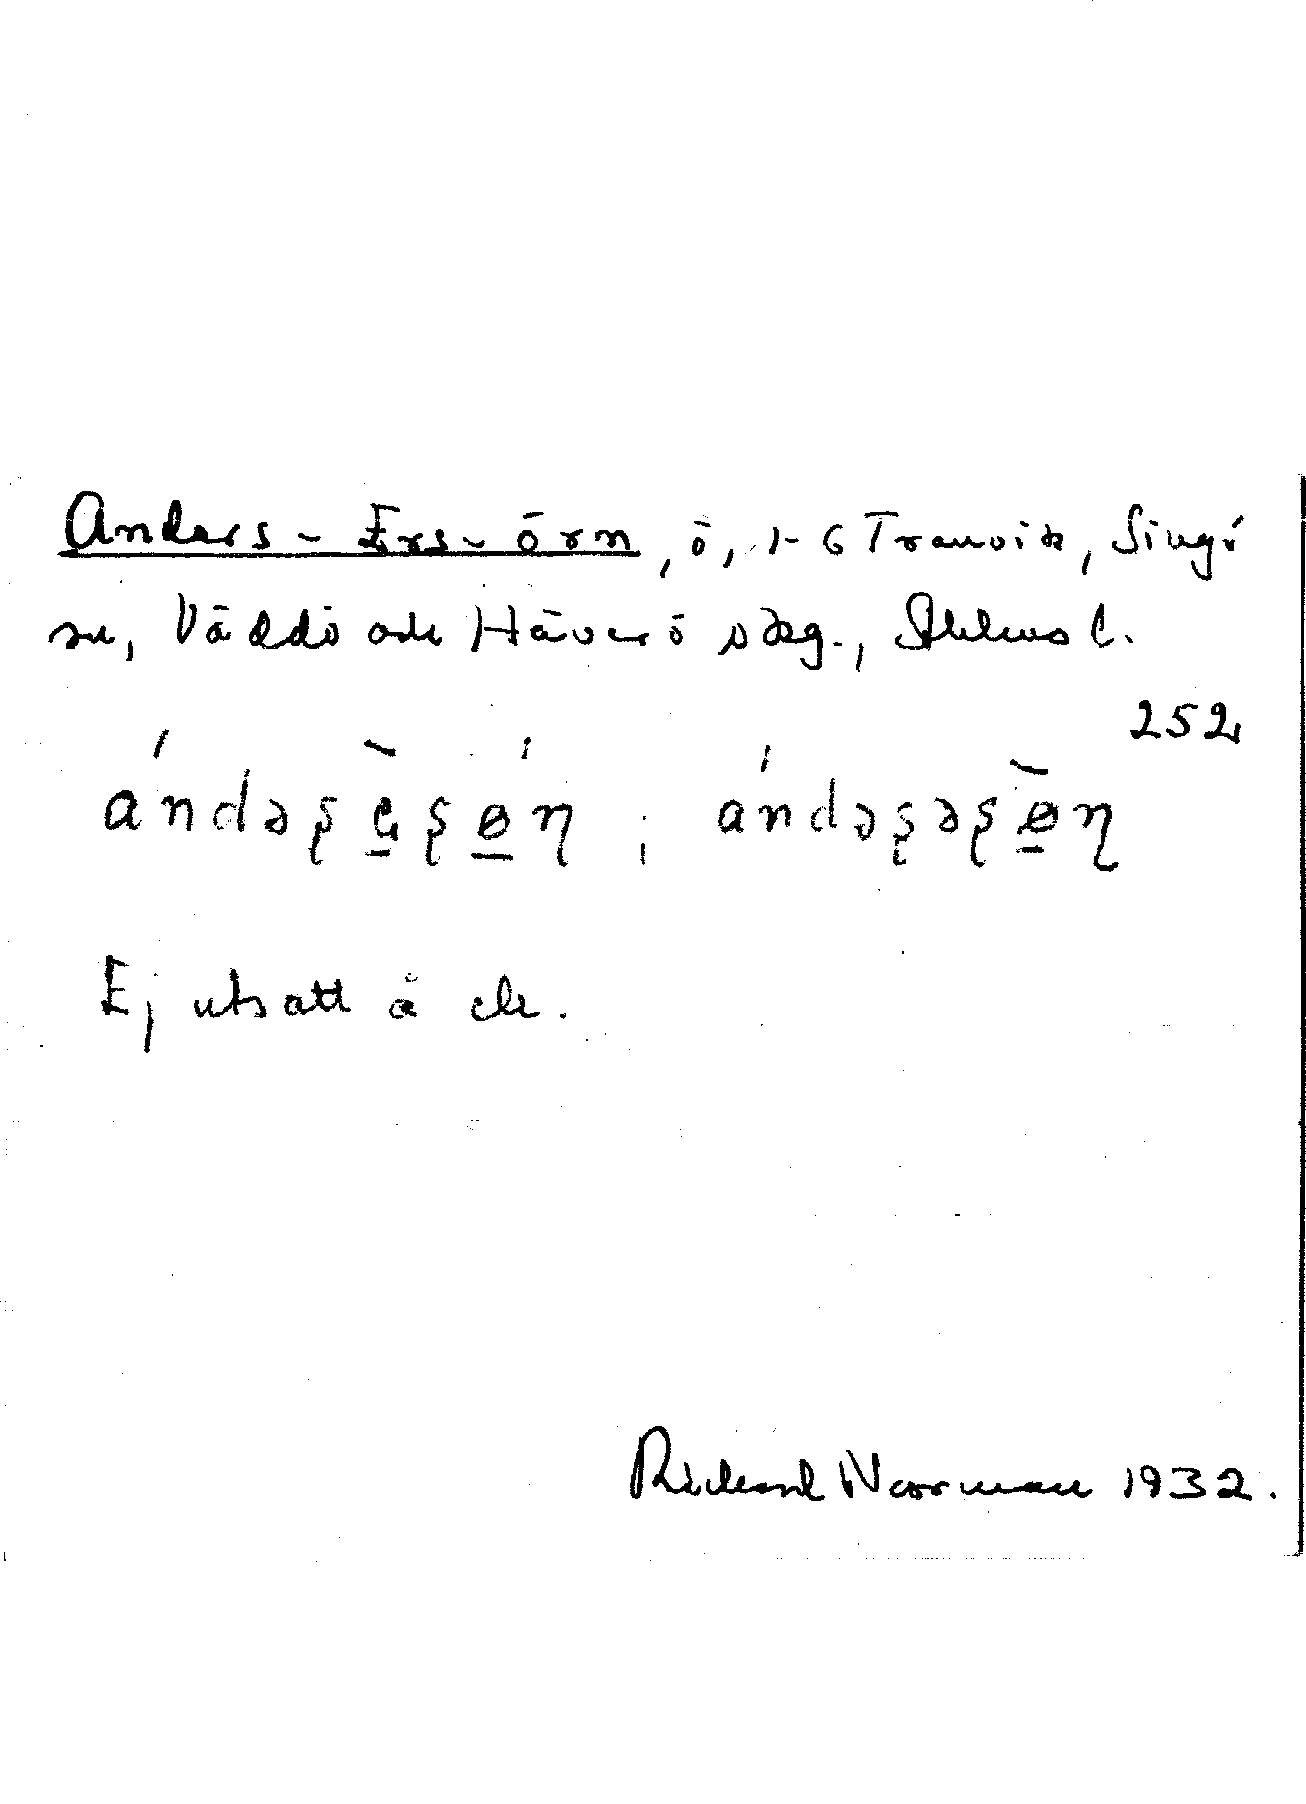 Anders-Ers-örn, ö, 1-6 Tranvik, Singö
sn, Väddö och Häverö skg., Sthlms l.
252
ándəʂ e̱ʂ ø̱ɳ ; ándəʂəʂø̱ɳ
Ej utsatt å ek.
Richard Norrman 1932.